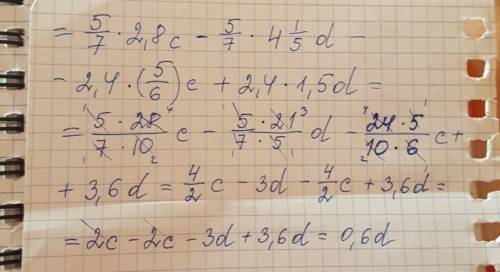 = 5/7 · 2,8c − 5/7 · 4 1/5 d −
− 2,4 · (5/6) c + 2,4 · 1,5d =
= 5 · 28⁴ / 7 · 10₂ c − 5 · 21³ / 7 · 5 d − 24 · 5 / 10 · 6 c +
+ 3,6d = 4/2 c − 3d − 4/2 c + 3,6d =
= 2c − 2c − 3d + 3,6d = 0,6d